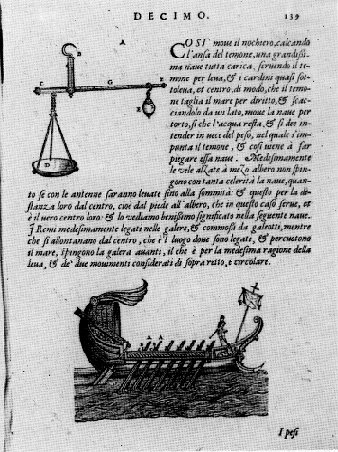 DECIMO. 139
A
B
G
E
D
COSI move il nochiero, calcando
l'ansa del temone, una grandissi-
ma nave tutta carica, servendo il te-
mone per leva, & i cardini quasi sot-
toleva, et centro, di modo, che il temo-
ne taglia il mare per diritto, & scac-
ciandolo da un lato, move la nave per
torto, si che l'acqua resta, & si dee in-
tender in vece del peso, nel quale s'im-
punta il temone, & così viene à far
piegare essa nave. Medesimamente
le vele alzate à mezo albero non spin-
gono con tanta celerità la nave, quan-
to se con le antenne saranno levate fino alla sommità: & questo per la di-
stanza loro dal centro, cioè dal piedi all'albero, che in questo caso serve, et
è il vero centro loro: & lo vediamo benissimo significato nella seguente nave.
I Remi medesimamente legati nelle galere, & commossi da galeotti, mentre
che si allontanano dal centro, che è il luogo dove sono legati, & percuotono
il mare, spingono la galera avanti, il che è per la medesima ragione della
leva, & de' due movimenti considerati di sopra retto, e circolare.
I pesi